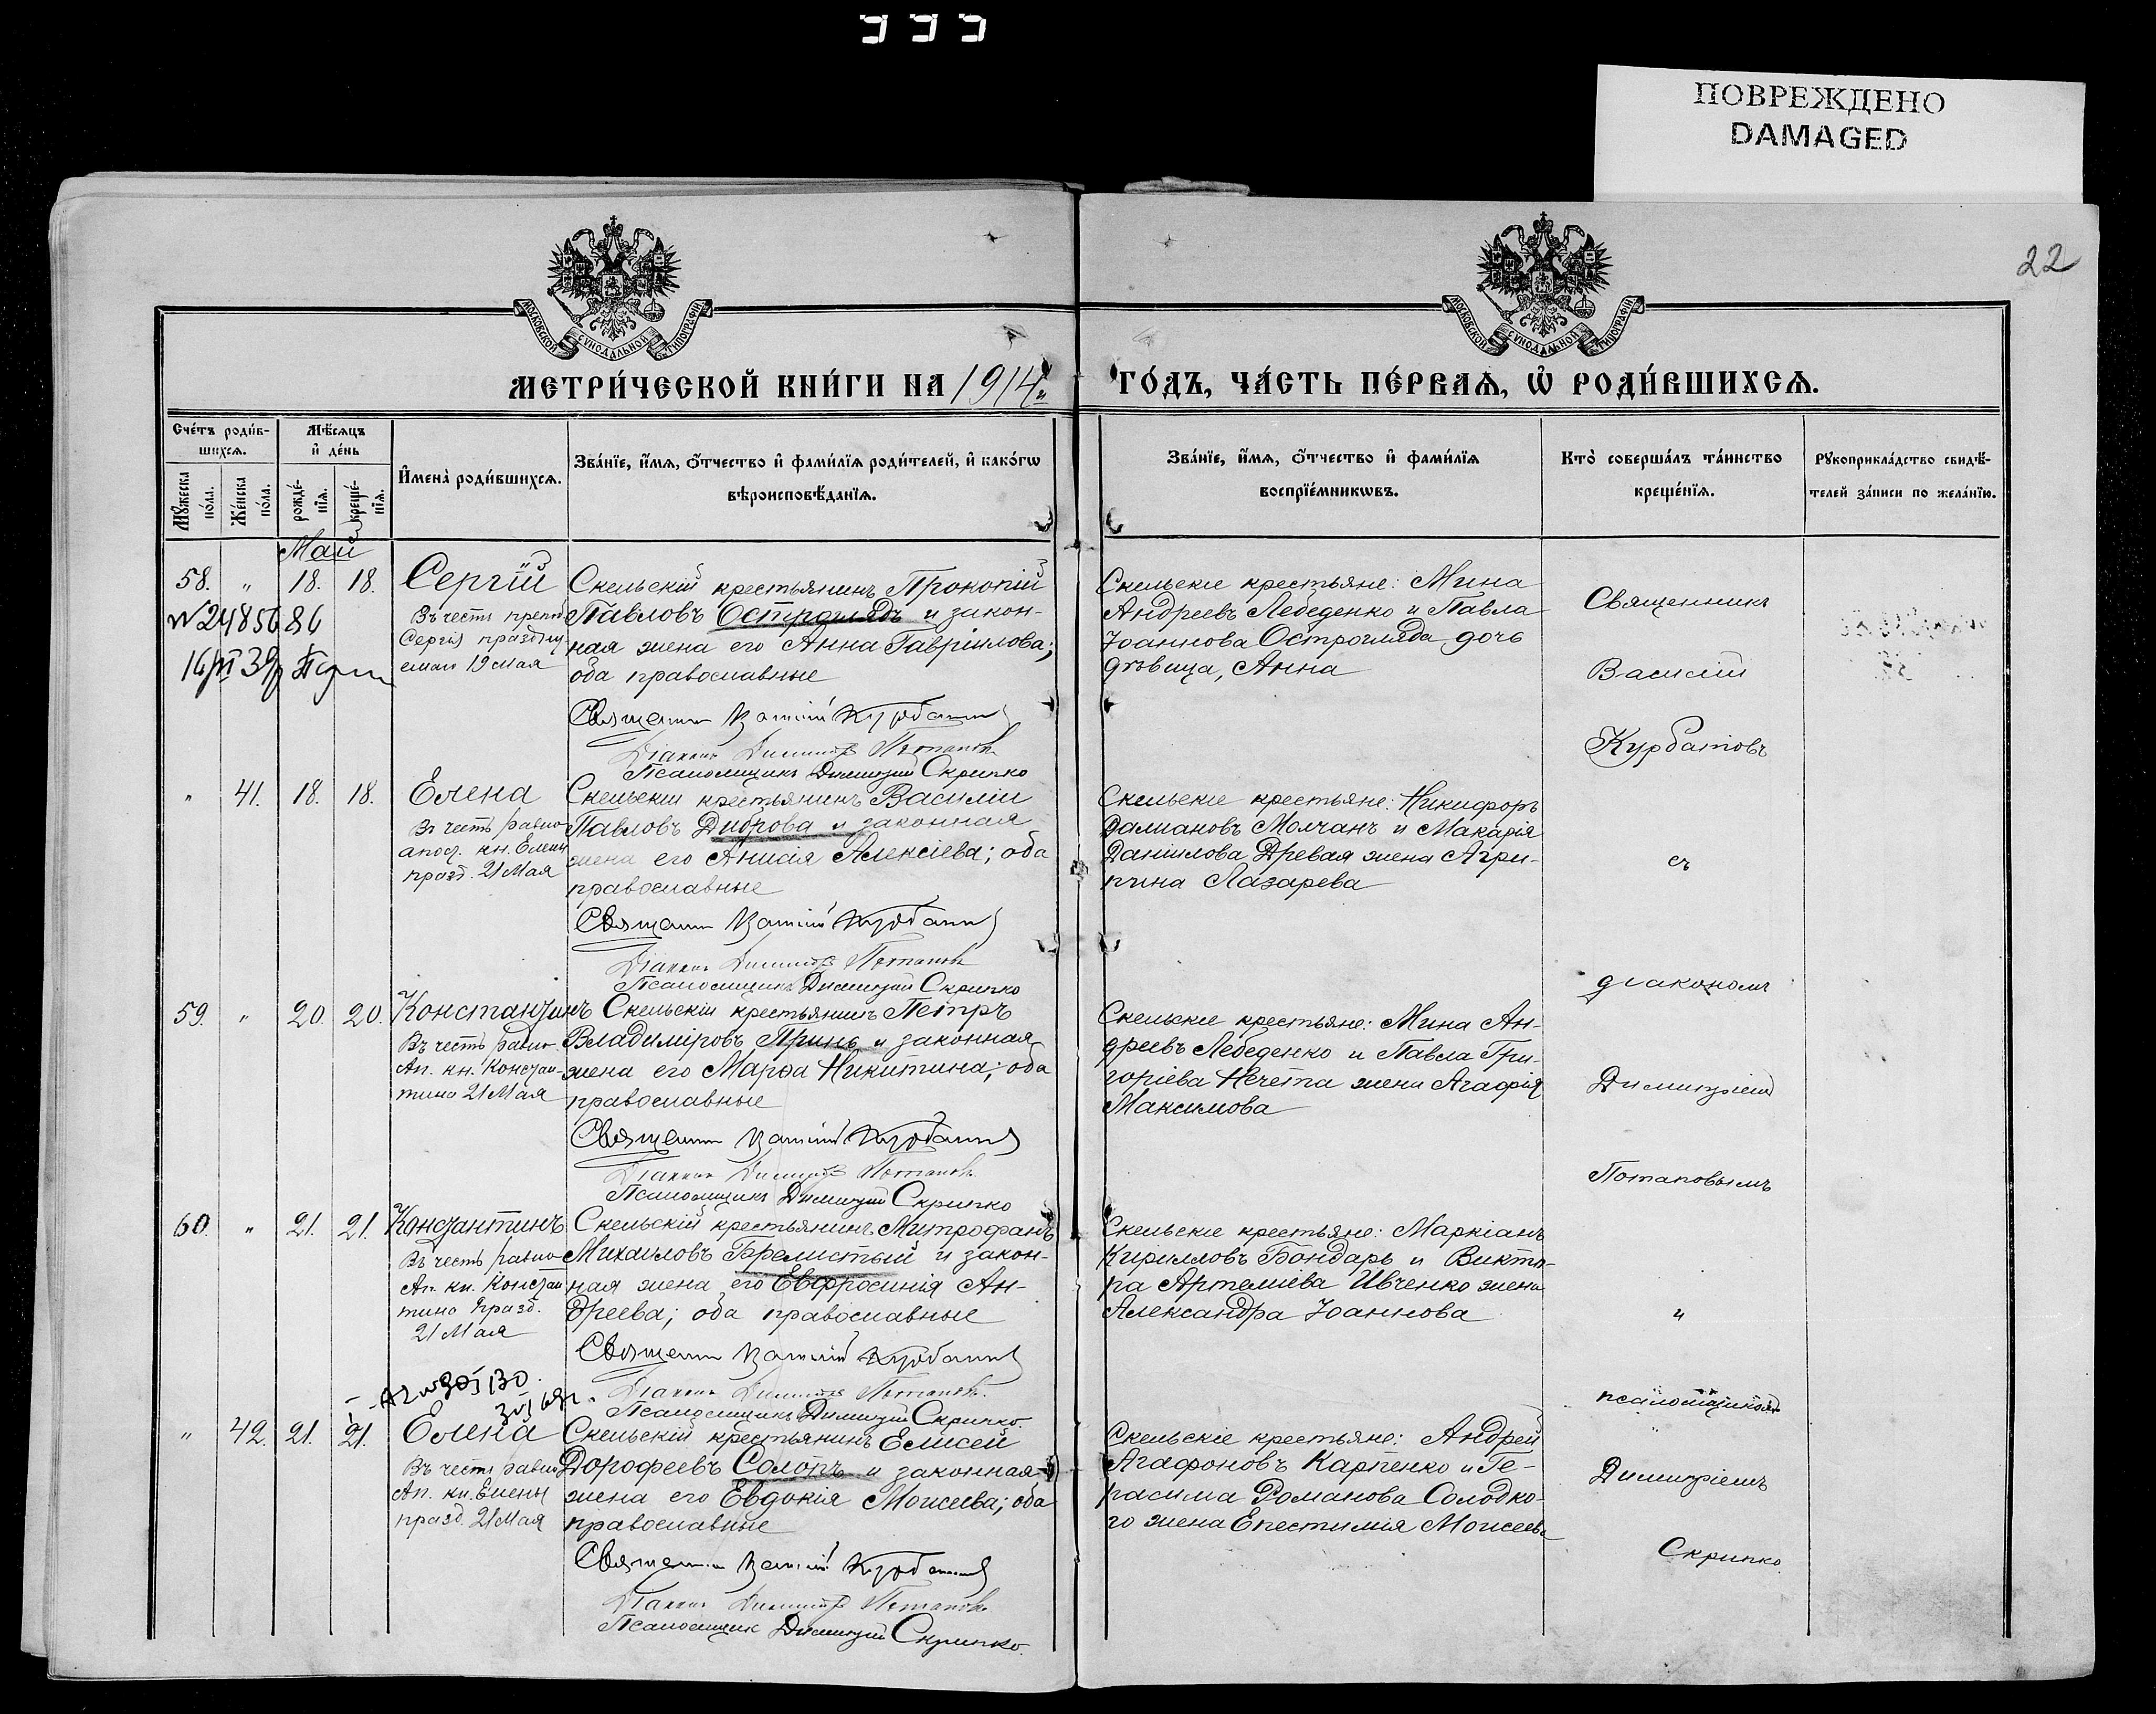 ПОВРЕЖДЕНО
DAMAGED
22
МОСКОВСКОЙ СѴНОДАЛЬНОЙ ТИПОГРАФІИ
МОСКОВСКОЙ СѴНОДАЛЬНОЙ ТИПОГРАФІИ
МЕТРИ́ЧЕСКОЙ КНИ́ГИ НА 1914
ГО́ДЪ, ЧА́СТЬ ПЕ́РВАѦ, Ѡ҆ РОДИ́ВШИХСѦ.
Сче́тъ роди́в-
шихсѧ.
Мꙋ́жеска по́ла.
Же́нска по́ла.
Мѣ́сѧцъ
и҆ де́нь
рожде́-нїѧ.
креще́-нїѧ.
И҆мена̀ роди́вшихсѧ.
Зва́нїе, и҆́мѧ, ѻ҆́тчество и҆ фами́лїѧ роди́телей, и҆ како́гѡ
вѣроисповѣ́данїѧ.
Зва́нїе, и҆́мѧ, ѻ҆́тчество и҆ фами́лїѧ
воспрїе́мникѡвъ.
Кто̀ соверша́лъ та́инство
креще́нїѧ.
Рꙋкоприкла́дство свидѣ́-
телей за́писи по жела́нїю.
Май
58. " 18. 18. Сергій
Въ честь препод
Сергія праздну
емаго 19 Мая
№ 2485686
Скельскій крестьянинъ Прокопій
Павловъ Остроглядъ и закон-
ная жена его Анна Гавріилова;
оба православные
Священникъ Василій Курбатовъ
Діаконъ Димитрій Потаповъ
Псаломщикъ Димитрій Скрипко
Скельскіе крестьяне: Мина
Андреевъ Лебеденко и Павла
Іоаннова Острогляда дочь
дѣвица, Анна
" 41. 18. 18. Елена
Въ честь равно
апос. кн. Елены
празд. 21 Мая
Скельскій крестьянинъ Василій
Павловъ Диброва и законная
жена его Анисія Алексіева; оба
православные
Священникъ Василій Курбатовъ
Діаконъ Димитрій Потаповъ
Псаломщикъ Димитрій Скрипко
Скельскіе крестьяне: Никифоръ
Далмановъ Молчанъ и Макарія
Даніилова Древая жена Агри-
пина Лазарева
59. " 20. 20. Константинъ
Въ честь равно
Ап. кн. Констан-
тина 21 Мая
Скельскій крестьянинъ Петръ
Владиміровъ Принь и законная
жена его Марѳа Никитина; оба
православные
Священникъ Василій Курбатовъ
Діаконъ Димитрій Потаповъ
Псаломщикъ Димитрій Скрипко
Скельскіе крестьяне: Мина Ан-
дреевъ Лебеденко и Павла Гри-
горіева Нечета жена Агафія
Максимова
60. " 21. 21. Константинъ
Въ честь равно
Ап. кн. Констан
тина празд.
21 Мая
Скельскій крестьянинъ Митрофанъ
Михаиловъ Бремистый и закон-
ная жена его Евфросинія Ан-
дреева; оба православные
Священникъ Василій Курбатовъ
Діаконъ Димитрій Потаповъ
Псаломщикъ Димитрій Скрипко
Скельскіе крестьяне: Маркіанъ
Кирилловъ Бондарь и Викто-
ра Артеміева Ивченко жена
Александра Іоаннова
" 42. 21. 21. Елена
Въ честь равно
Ап. кн. Елены
празд. 21 Мая
Скельскій крестьянинъ Елисей
Дорофеевъ Солопъ и законная
жена его Евдокія Моисеева; оба
православные
Священникъ Василій Курбатовъ
Діаконъ Димитрій Потаповъ
Псаломщикъ Димитрій Скрипко
Скельскіе крестьяне: Андрей
Агафоновъ Карпенко и Ге-
расима Романова Солодко-
го жена Епестимія Моисеева
Священникъ
Василій
Курбатовъ
съ
діакономъ
Димитріемъ
Потаповымъ
"
псаломщикомъ
Димитріемъ
Скрипко